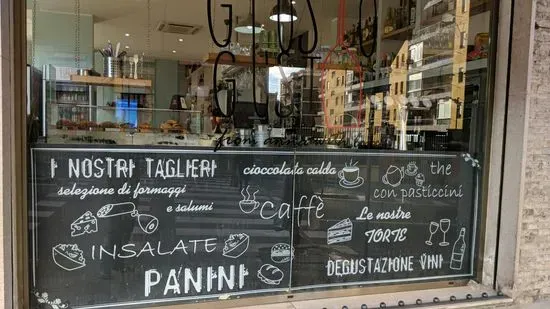 I NOSTRI TAGLIERI
selezione di formaggi
e salumi
INSALATE
PANINI
cioccolata calda
caffè
the
con pasticcini
Le nostre
TORTE
DEGUSTAZIONE VINI